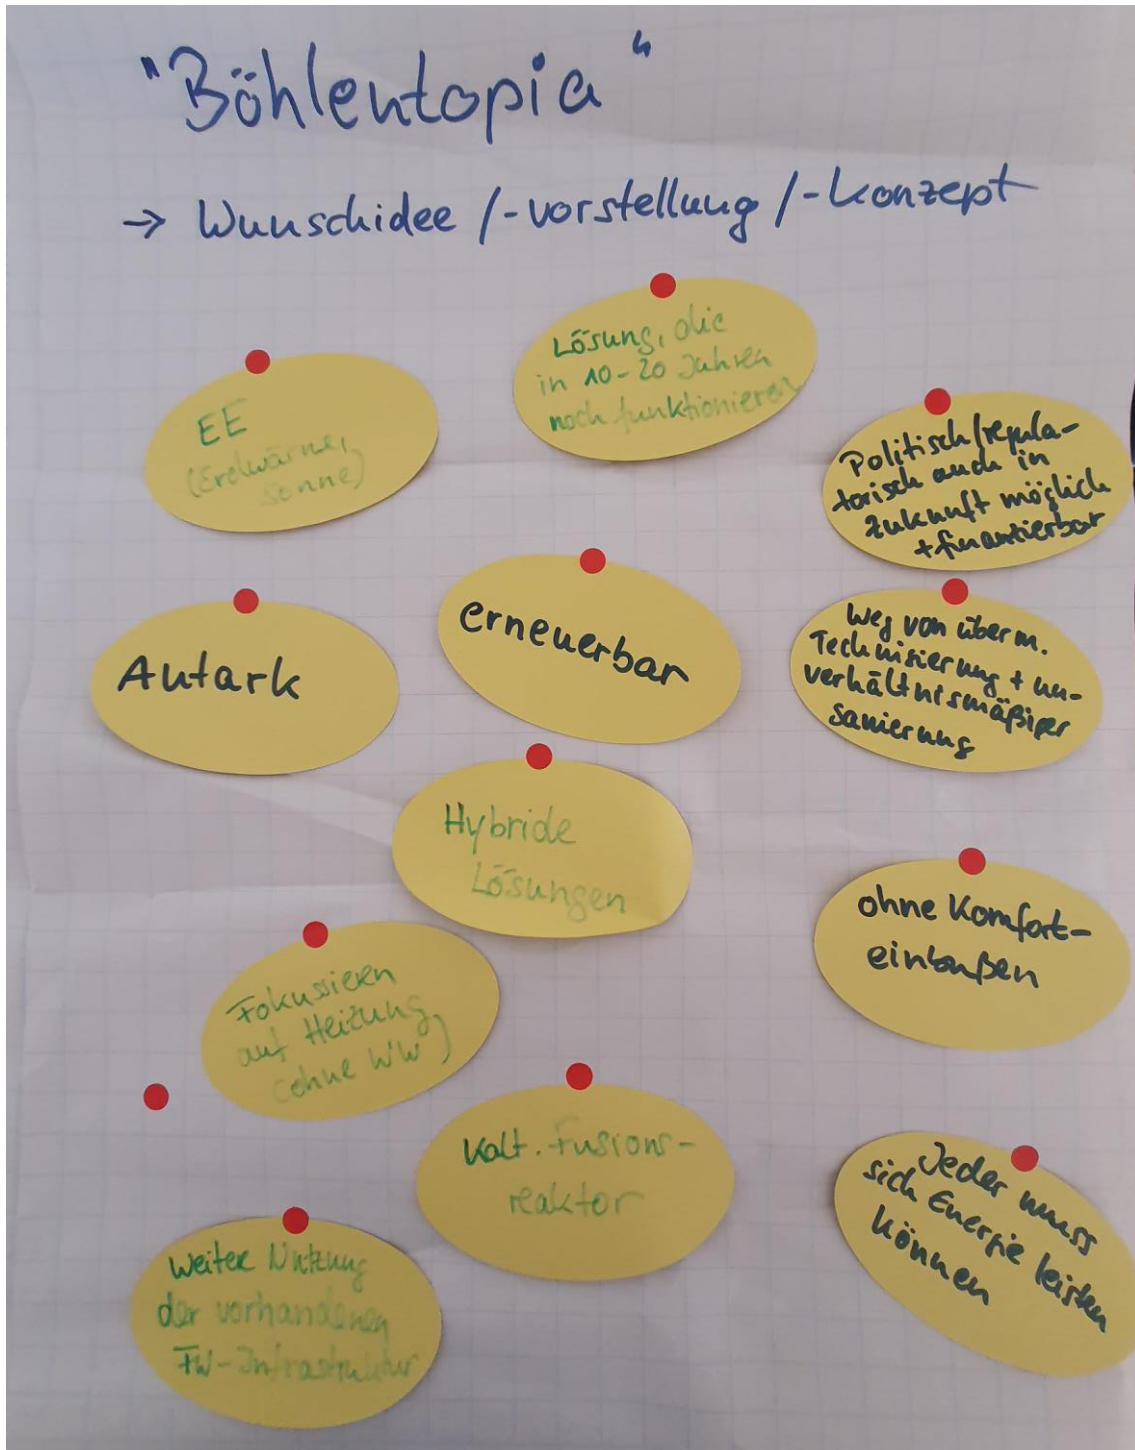 "Böhlentopia"
→ Wunschidee /-vorstellung /-konzept
Lösung, die
in 10-20 Jahren
noch funktionieren
EE
(Erdwärme,
Sonne)
Politisch/regula-
torisch auch in
Zukunft möglich
+finanzierbar
Autark
erneuerbar
Weg von überm.
Technisierung + un-
verhältnismäßiger
Sanierung
Hybride
Lösungen
ohne Komfort-
einbußen
Fokussieren
auf Heizung
(ohne WW)
Kalt. Fusions-
reaktor
Jeder muss
sich Energie leisten
können
Weiter Nutzung
der vorhandenen
FW-Infrastruktur